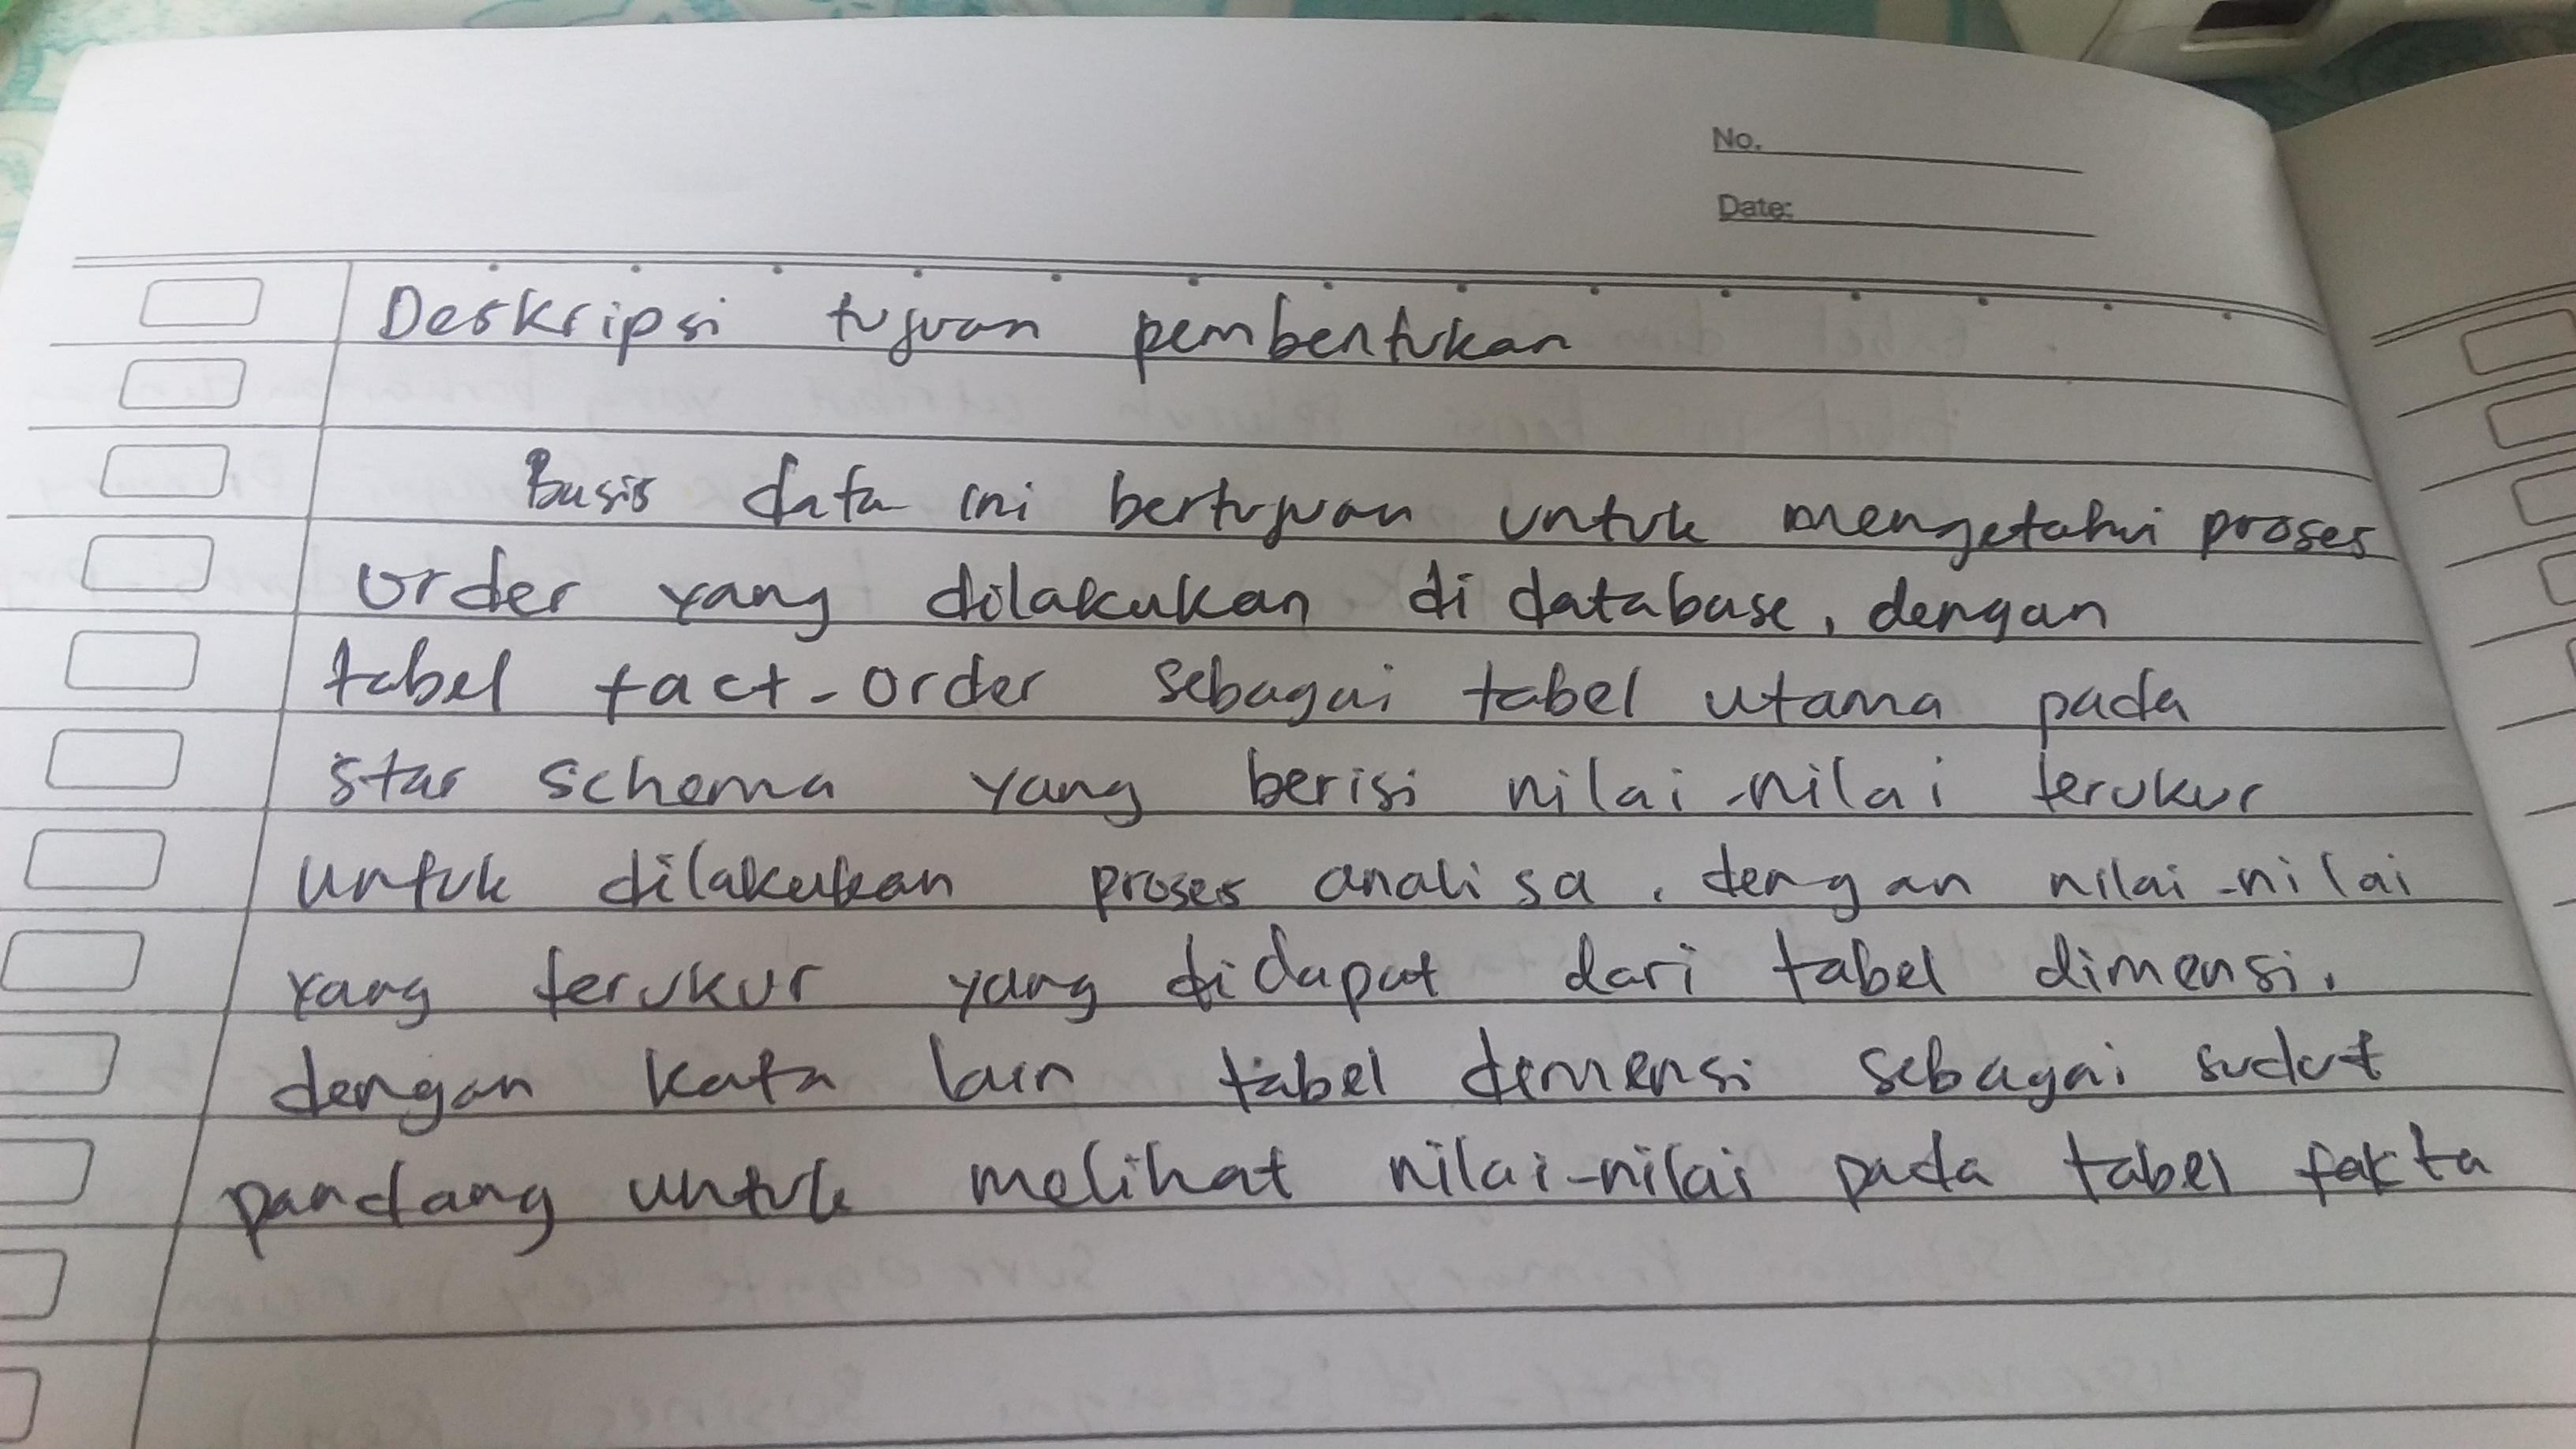 No.
Date:
Deskripsi tujuan pembentukan
Basis data ini bertujuan untuk mengetahui proses
order yang dilakukan di database, dengan
tabel fact-order sebagai tabel utama pada
star schema yang berisi nilai-nilai terukur
untuk dilakukan proses analisa, dengan nilai-nilai
yang terukur yang didapat dari tabel dimensi.
dengan kata lain tabel dimensi sebagai sudut
pandang untuk melihat nilai-nilai pada tabel fakta